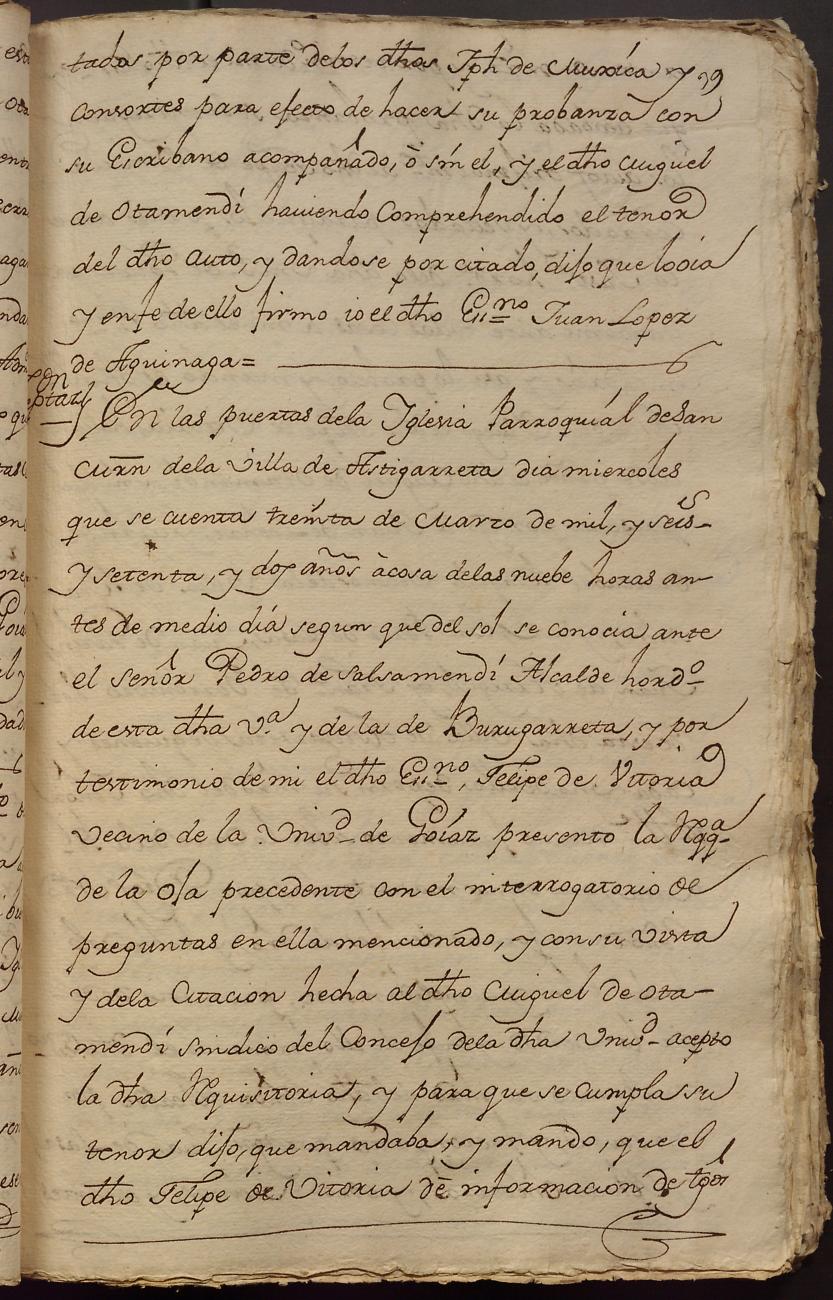 tados por parte delos dhos Jph de Muxica y
Consortes para efecto de hacer su probanza con
su Escribano acompañado, ò sin el, y el dho Miguel
de Otamendi haviendo Comprehendido el tenor
del dho Auto, y dandose por citado, dijo que lo oia
y en fe de ello firmo io el dho Essno Juan Lopez
de Aguinaga =
En las puertas dela Iglesia Parroquial de San
Mrn dela Villa de Astigarreta dia miercoles
que se cuenta treinta de Marzo de mil, y seis
y setenta, y dos años à cosa delas nuebe horas an-
tes de medio dia segun que del sol se conocia ante
el Señor Pedro de Salsamendi Alcalde hordo
de esta dha Va y de la de Burugarreta, y por
testimonio de mi el dho Essno, Felipe de Vitoria
Vecino de la Univd de Goiaz presentò la Rqqa
de la oja precedente con el interrogatorio de
preguntas en ella mencionado, y con su vista
y dela Citacion hecha al dho Miguel de Ota-
mendi sindico del Concejo dela dha Univd acepto
la dha Rquisitoria, y para que se cumpla su
tenor dijo, que mandaba, y mando, que el
dho Felipe de Vitoria dè informacion de tgos